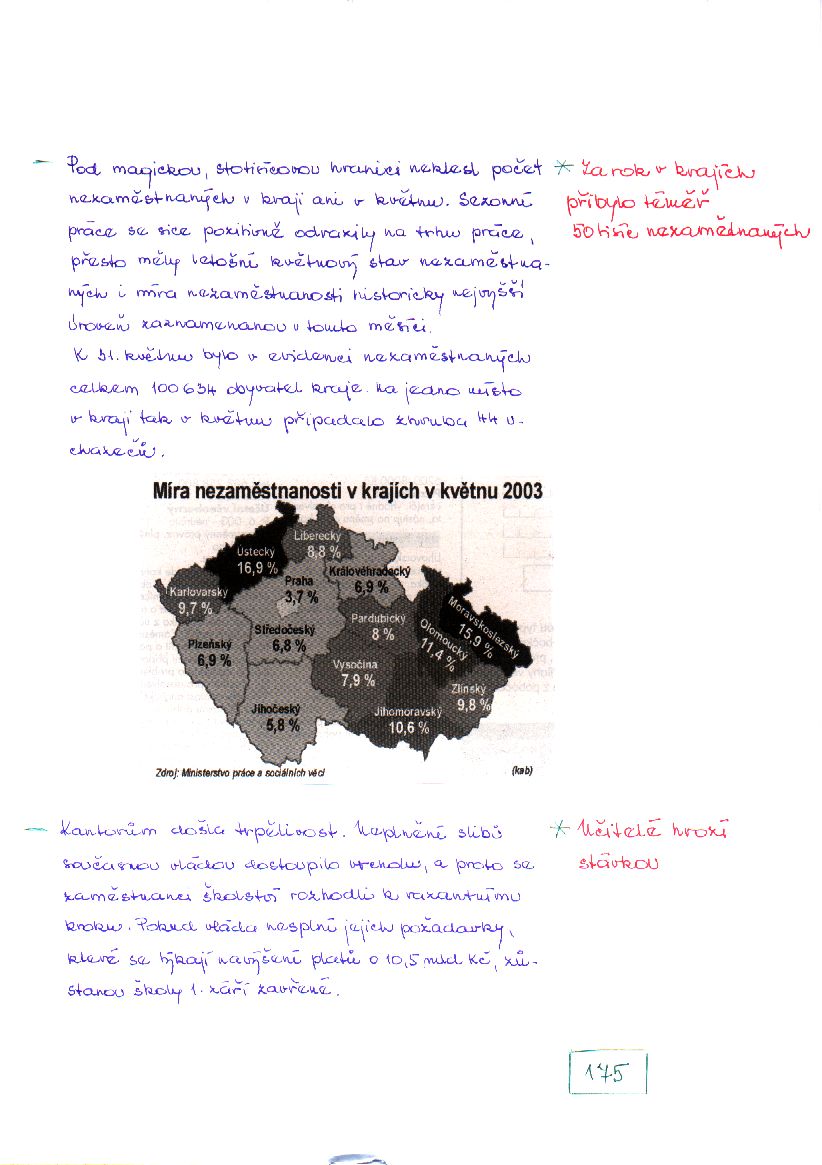 – Pod magickou, stotisícovou hranici neklesl počet
nezaměstnaných v kraji ani v květnu. Sezonní
práce se sice pozitivně odrazily na trhu práce,
přesto měly letošní květnový stav nezaměstna-
ných i míra nezaměstnanosti historicky nejvyšší
úroveň zaznamenanou v tomto měsíci.
K 31. květnu bylo v evidenci nezaměstnaných
celkem 100634 obyvatel kraje. Na jedno místo
v kraji tak v květnu připadalo zhruba 44 u-
chazečů.
* Za rok v krajích
přibylo téměř
50 tisíc nezamědnaných
Míra nezaměstnanosti v krajích v květnu 2003
Liberecký
8,8 %
Ústecký
16,9 %
Královéhradecký
6,9 %
Praha
3,7 %
Karlovarský
9,7 %
Moravskoslezský
15,9 %
Pardubický
8 %
Olomoucký
11,4 %
Středočeský
6,8 %
Plzeňský
6,9 %
Vysočina
7,9 %
Zlínský
9,8 %
Jihočeský
5,8 %
Jihomoravský
10,6 %
Zdroj: Ministerstvo práce a sociálních věcí
(kab)
– Kantorům došla trpělivost. Neplnění slibů
současnou vládou dostoupilo vrcholu, a proto se
zaměstnanci školství rozhodli k razantnímu
kroku. Pokud vláda nesplní jejich požadavky,
které se týkají navýšení platů o 10,5 mld Kč, zů-
stanou školy 1. září zavřené.
* Učitelé hrozí
stávkou
175